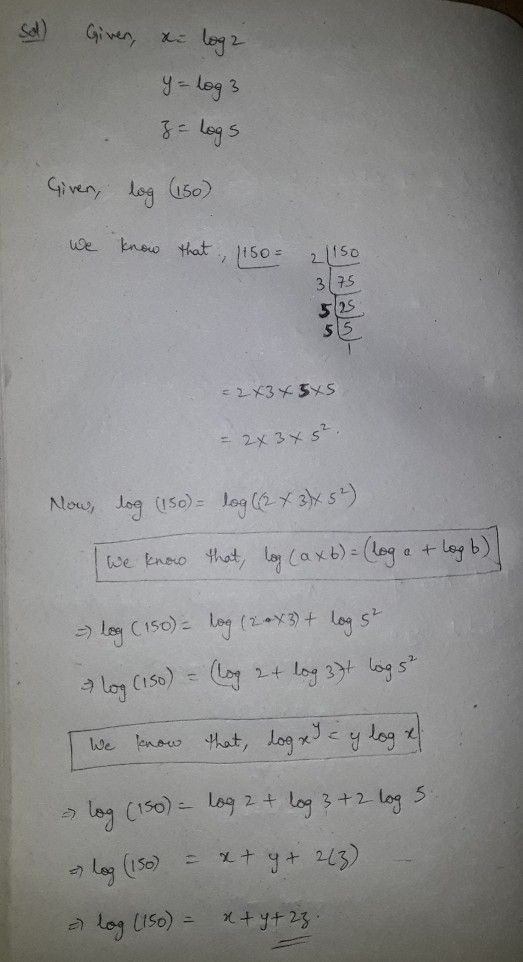 Sol) Given, x = log 2
y = log 3
z = log 5
Given, log (150)
We know that, 150 = 2 | 150
3 | 75
5 | 25
5 | 5
1
= 2×3×5×5
= 2×3×5².
Now, log (150) = log((2×3)×5²)
We know that, log(a×b) = (log a + log b)
⇒ log (150) = log (2×3) + log 5²
⇒ log (150) = (log 2 + log 3) + log 5²
We know that, log x^y = y log x
⇒ log (150) = log 2 + log 3 + 2 log 5.
⇒ log (150) = x + y + 2(z)
⇒ log (150) = x + y + 2z.